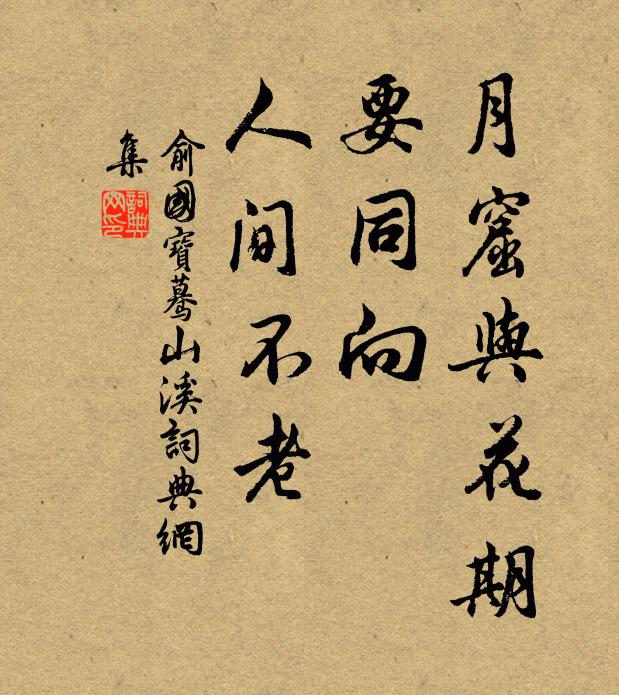 月窟與花期
要同向
人間不老
俞國寶驀山溪詞典網
集
詞典
网印